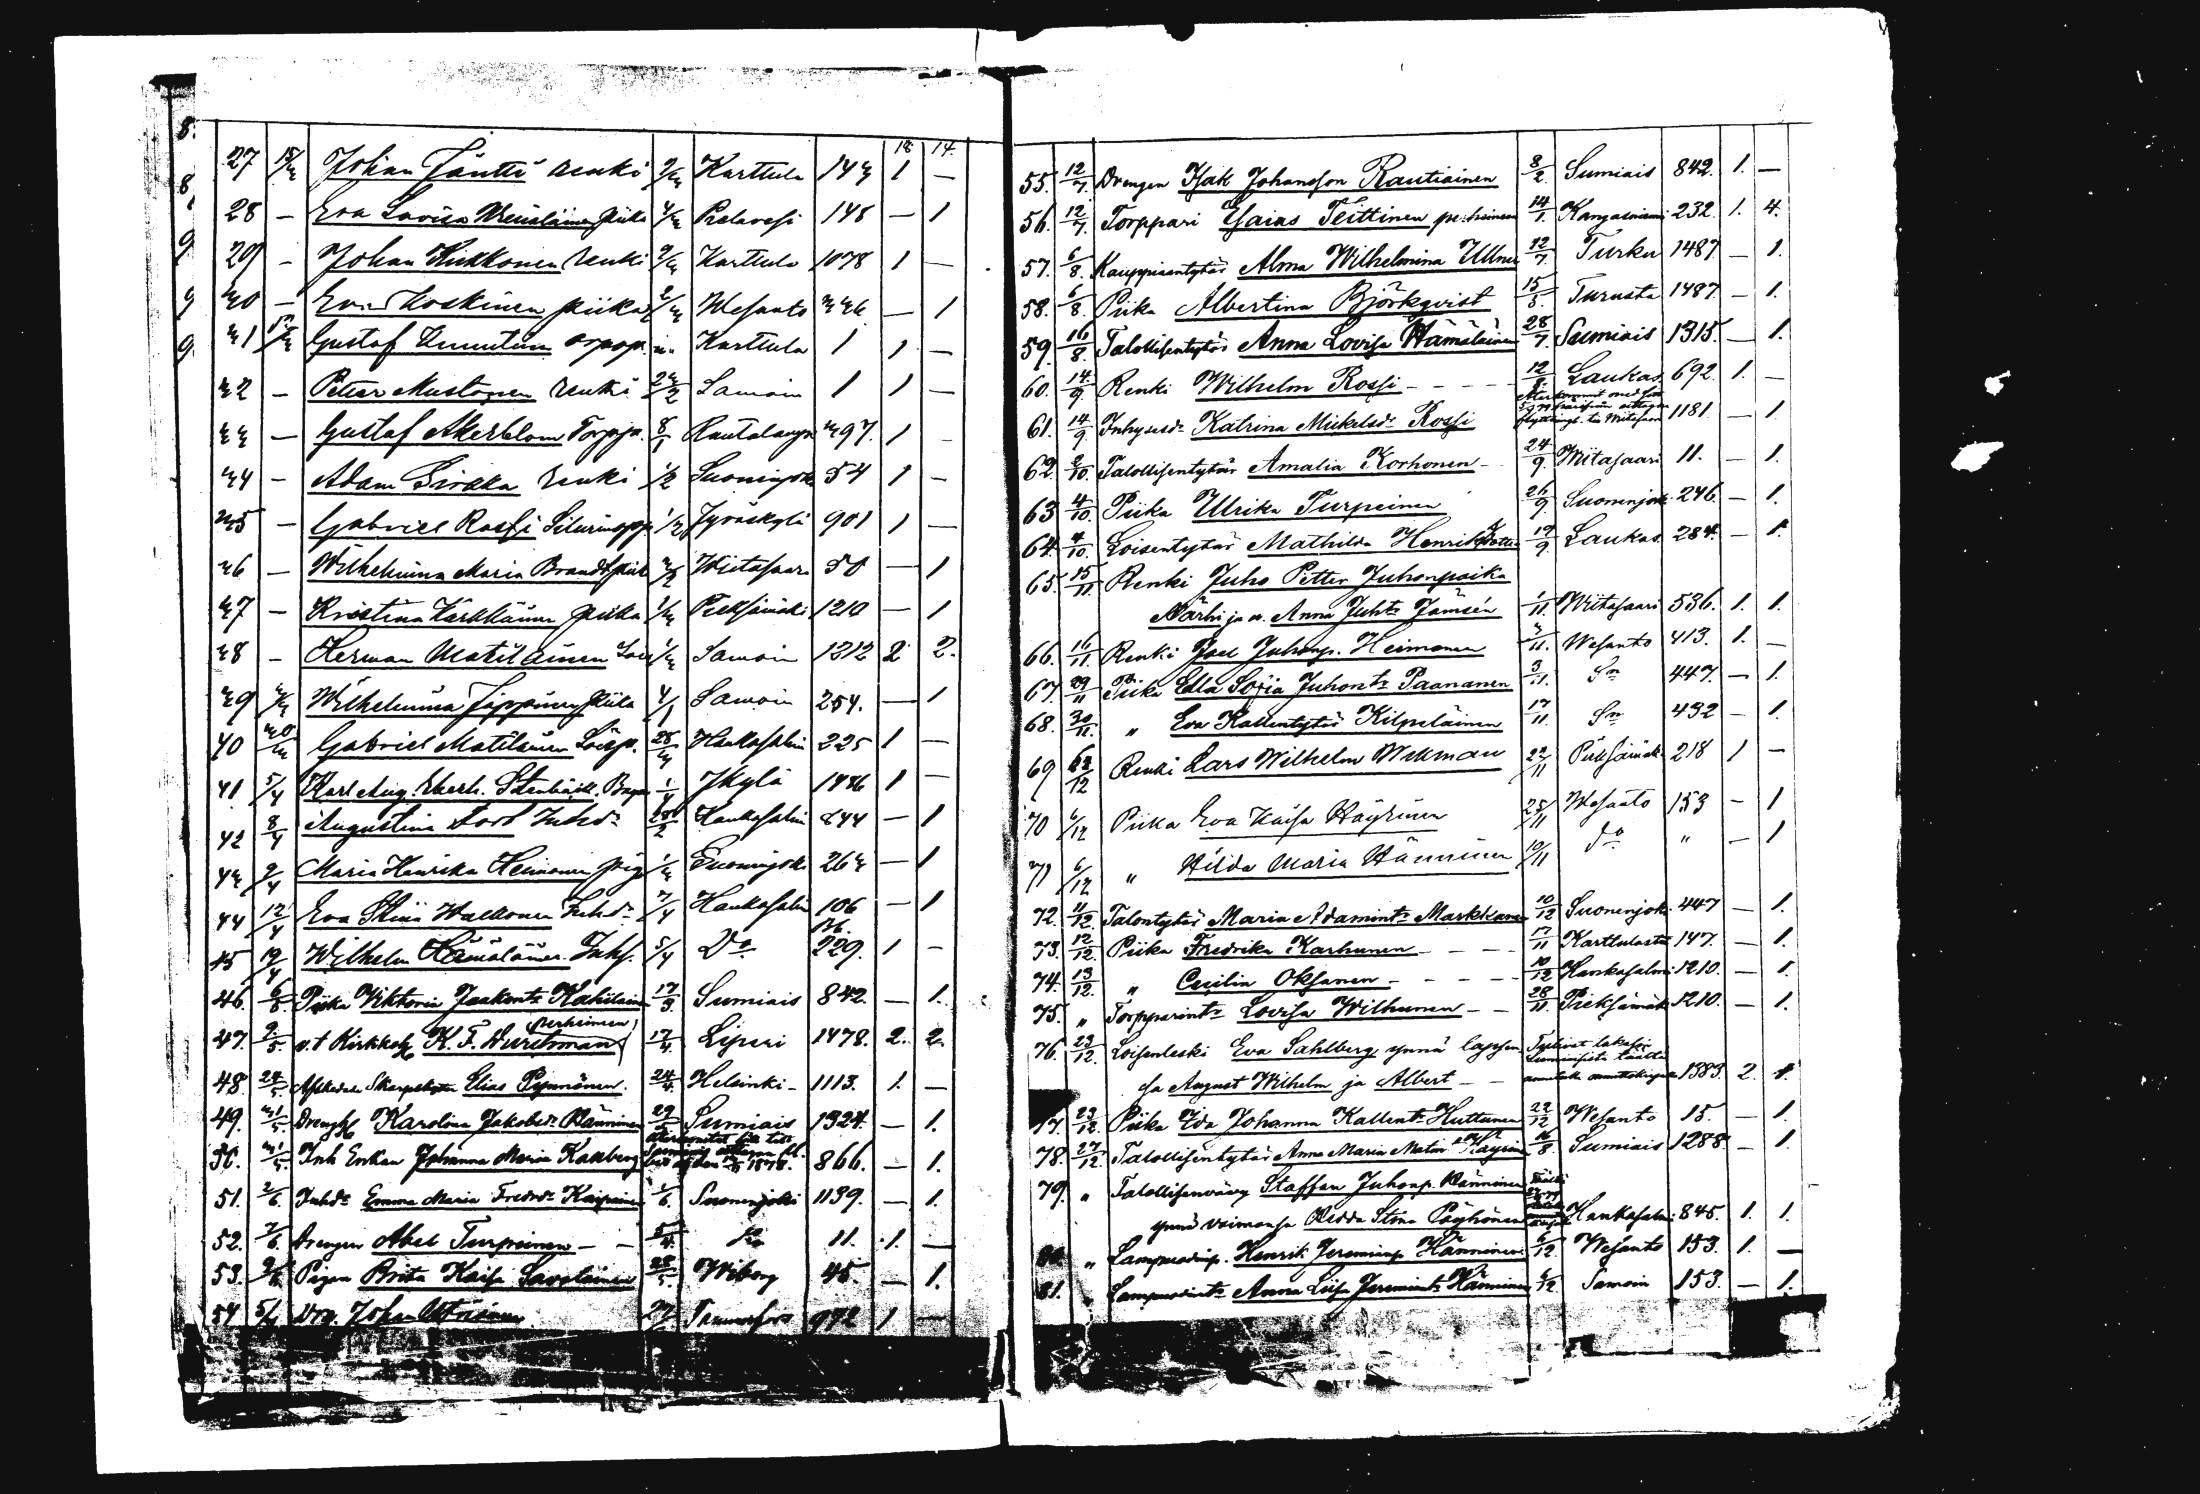 18 14.
27 15/3 Johan Jäntti renki 9/3 Karttula 143 1 —
28 — Eva Lovisa piika 4/3 Pielavesi 148 — 1
29 — Johan Kukkonen renki 9/3 Karttula 1078 1 —
30 — Eva Koskinen piika 2/3 Wesanto 336 — 1
31 Gustaf Karttula 1 1 —
32 — Petter Mustonen renki 23/2 Samoin 1 1 —
33 — Gustaf Åkerblom Torpp. 8/1 Rautalampi 397. 1 —
34 — Adam Sirkka renki 1/2 Suonenjoki 54 1 —
35 — Gabriel Rossi 1/2 Jyväskylä 901 1 —
36 — Wilhelmina Maria Brandt piika Wiitasaari 50 — 1
37 — Kristina Kärkkäinen piika 1/3 Pieksämäki 1210 — 1
38 — Herman Matilainen 1/3 Samoin 1212 2 2.
39 Wilhelmina Jäppinen piika 4/1 Samoin 254. — 1
40 30/3 Gabriel Matilainen Loisp. 28/3 Hankasalmi 225 1 —
41 5/4 Karl Aug. Stenbäck. 1/4 Jkylä 1 —
42 8/4 Augustina Fors Inhd. Hankasalmi 844 — 1
43 9/4 Maria Henrika Heimonen pig 1/3 Suonenjoki 263 — 1
44 12/4 Eva Stina Halkonen Inhd. 7/4 Hankasalmi 106 — 1
45 19/4 Wilhelm Hämäläinen Inhs. 5/4 Do 229. 1 —
46. 6/5. Piika Viktoria Jaakont. Kahilainen 17/3. Sumiais 842. — 1.
perheineen
47. 9/5. v.t Kirkkoh. K. F. Durchman 17/4. Liperi 1478. 2. 2.
48. 24/5. Afskedade Skarpskytten Elias Pynnönen. 24/4. Helsinki — 1113. 1. —
49. 31/5. Karolina Jakobsd. Hänninen 29/5 Sumiais 1324. — 1.
50. 31/5. Inh. Enkan Johanna Maria Kallberg 866. — 1.
51. 2/6. Inhd. Emma Maria Fredrd. 1/6. Suonenjoki 1139. — 1.
52. 7/6. Drengen Abel Turpeinen — — 5/4. Do 11. 1. —
53. 9/6. Pigan Brita Kaisa Savolainen 28/5. Wiborg 45. — 1.
54 5/7 Drg. Johan 27 Tammerfors 972 1 —
55. 12/7. Drengen Isak Johansson Rautiainen 8/2. Sumiais 842. 1. —
56. 12/7. Torppari Esaias Teittinen perheineen 14/1. Kangasniemi 232. 1. 4.
57. 6/8. Kauppiaantytär Alma Wilhelmina Ullner 12/7 Turku 1487. — 1.
58. 6/8. Piika Albertina Björkqvist 15/5. Turusta 1487. — 1.
59. 16/8. Talollisentytär Anna Lovisa Hämäläinen 28/7 Sumiais 1315. — 1.
60. 14/9. Renki Wilhelm Rossi - - - - 12/8. Laukas. 692. 1. —
61. 14/9. Inhysesd. Katrina Mickelsd. Rossi 1181. — 1
62. 2/10. Talollisentytär Amalia Korhonen — 24/9. Wiitasaari 11. — 1.
63 4/10. Piika Ulrika Turpeinen 26/9. Suonenjoki 246. — 1.
64. 4/10. Loisentytär Mathilda Henriksdotter 19/9. Laukas. 284. — 1.
65. 15/11. Renki Juho Petter Juhonpoika
Närhi ja v. Anna Juht. Jämsén 1/11. Wiitasaari 536. 1. 1.
66. 16/11. Renki Joel Juhonp. Heimonen 3/11. Wesanto 413. 1. —
67. 29/11 Piika Ella Sofia Juhont. Paananen 3/11. Sm 447. — 1.
68. 30/11. " Eva Kallentytär Kilpeläinen 17/11. Sm 432 — 1.
69 Renki Lars Wilhelm Wikman 22/11 Pieksämäki 218 1 —
70 6/12 Piika Eva Kaisa Häyrinen 25/11 Wesanto 153 — 1
71 6/12 " Hilda Maria Hänninen 19/11 do " — 1
72. 11/12. Talontytär Maria Adamint. Markkanen 10/12 Suonenjoki 447 — 1.
73. 12/12. Piika Fredrika Karhunen — - - - 17/11 Karttulasta 147. — 1.
74. 13/12. " Cecilia Oksanen - - - - - 10/12 Hankasalmi 1210. — 1.
75. " Torpparint. Lovisa Wilhunen - - 28/11. Pieksämäki 1210. — 1.
76. 23/12. Loisenleski Eva Sahlberg ynnä lapsen-
sa August Wilhelm ja Albert — — 1383. 2. 1.
77. 23/12. Piika Ida Johanna Kallent. Huttunen 22/12 Wesanto 15. — 1.
78. 27/12. Talollisentytär Anna Maria Matint. Häyrinen 16/8. Sumiais 1288. — 1.
79. " Talollisenvävy Staffan Juhonp. Hänninen
ynnä vaimonsa Hedda Stina Pöyhönen Hankasalmi 845. 1. 1.
80. " Henrik Jeremiasp. Hänninen 6/12. Wesanto 153. 1. —
81. Anna Liisa Jeremiast. Hänninen 6/12. Samoin 153. — 1.